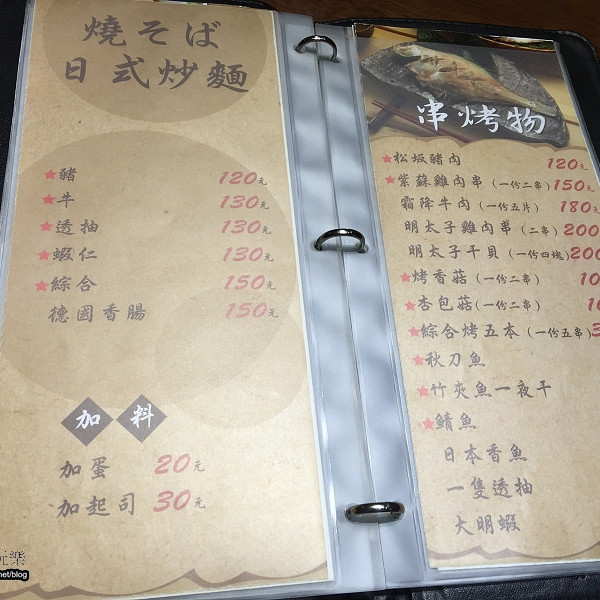 燒そば
日式炒麵
★豬 120元
★牛 130元
★透抽 130元
★蝦仁 130元
★綜合 150元
德國香腸 150元
加料
加蛋 20元
加起司 30元
串烤物
★松坂豬肉 120元
★紫蘇雞肉串(一份二串) 150元
霜降牛肉(一份五片) 180元
明太子雞肉串(二串) 200
明太子干貝(一份四塊) 200
★烤香菇(一份二串)
★杏包菇(一份二串)
★綜合烤五本(一份五串)
★秋刀魚
★竹夾魚一夜干
★鯖魚
日本香魚
一隻透抽
大明蝦
玩樂
net/blog